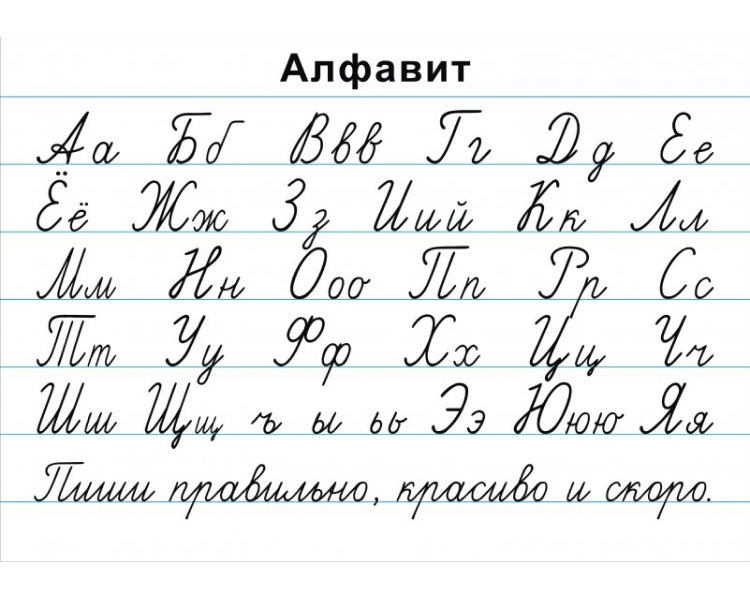 Алфавит
Аа Бб Ввв Гг Дд Ее
Ёё Жж Зз Иий Кк Лл
Мм Нн Ооо Пп Рр Сс
Тт Уу Фф Хх Цц Чч
Шш Щщ ъ ы ьь Ээ Ююю Яя
Пиши правильно, красиво и скоро.